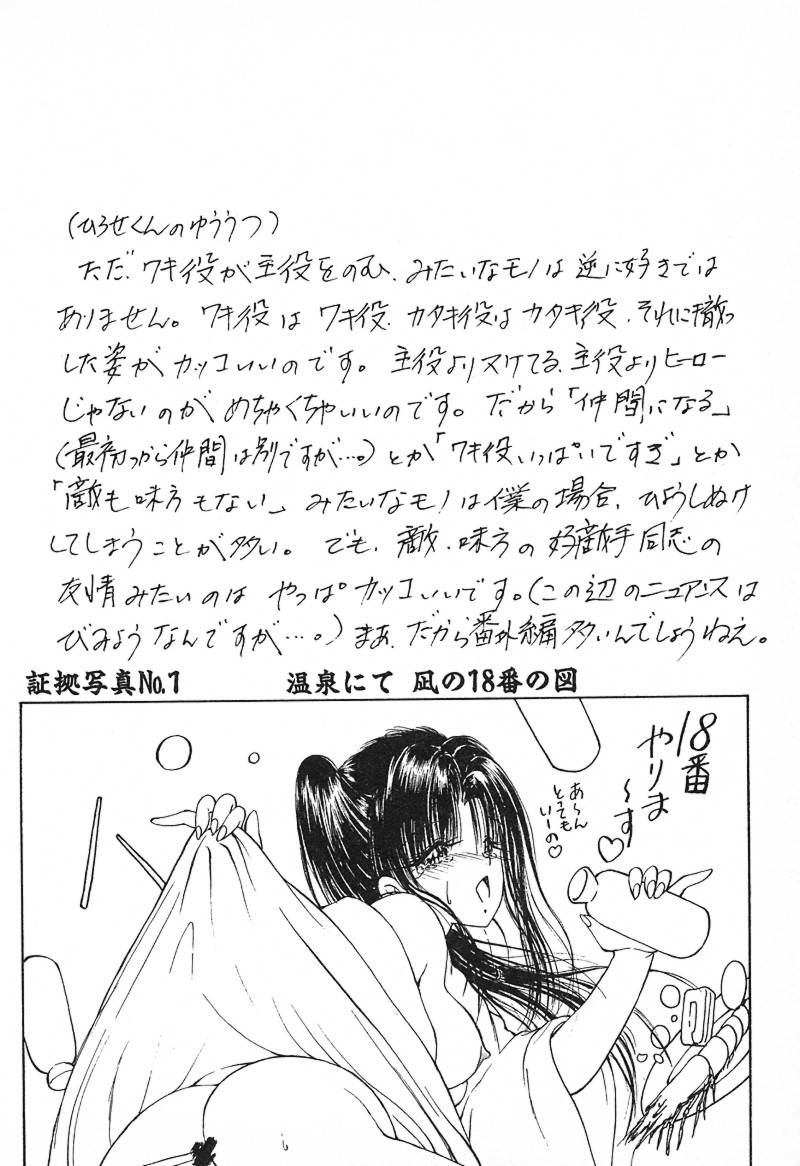 (ひろせくんのゆううつ)
ただ、ワキ役が主役をのむ、みたいなモノは逆に好きでは
ありません。ワキ役はワキ役、カタキ役はカタキ役、それに徹っ
した姿がカッコいいのです。主役よりヌケてる、主役よりヒーロー
じゃないのがめちゃくちゃいいのです。だから「仲間になる」
(最初っから仲間は別ですが…。)とか「ワキ役いっぱいですぎ」とか
「敵も味方もない」みたいなモノは僕の場合、ひょうしぬけ
してしまうことが多い。でも、敵、味方の好敵手同志の
友情みたいのはやっぱカッコいいです。(この辺のニュアンスは
びみょうなんですが…。)まあ、だから番外編多いんでしょうねえ。
証拠写真No.1 温泉にて 凪の18番の図
18番
やりま
〜す♡
あ〜ん
とっても
い〜の♡